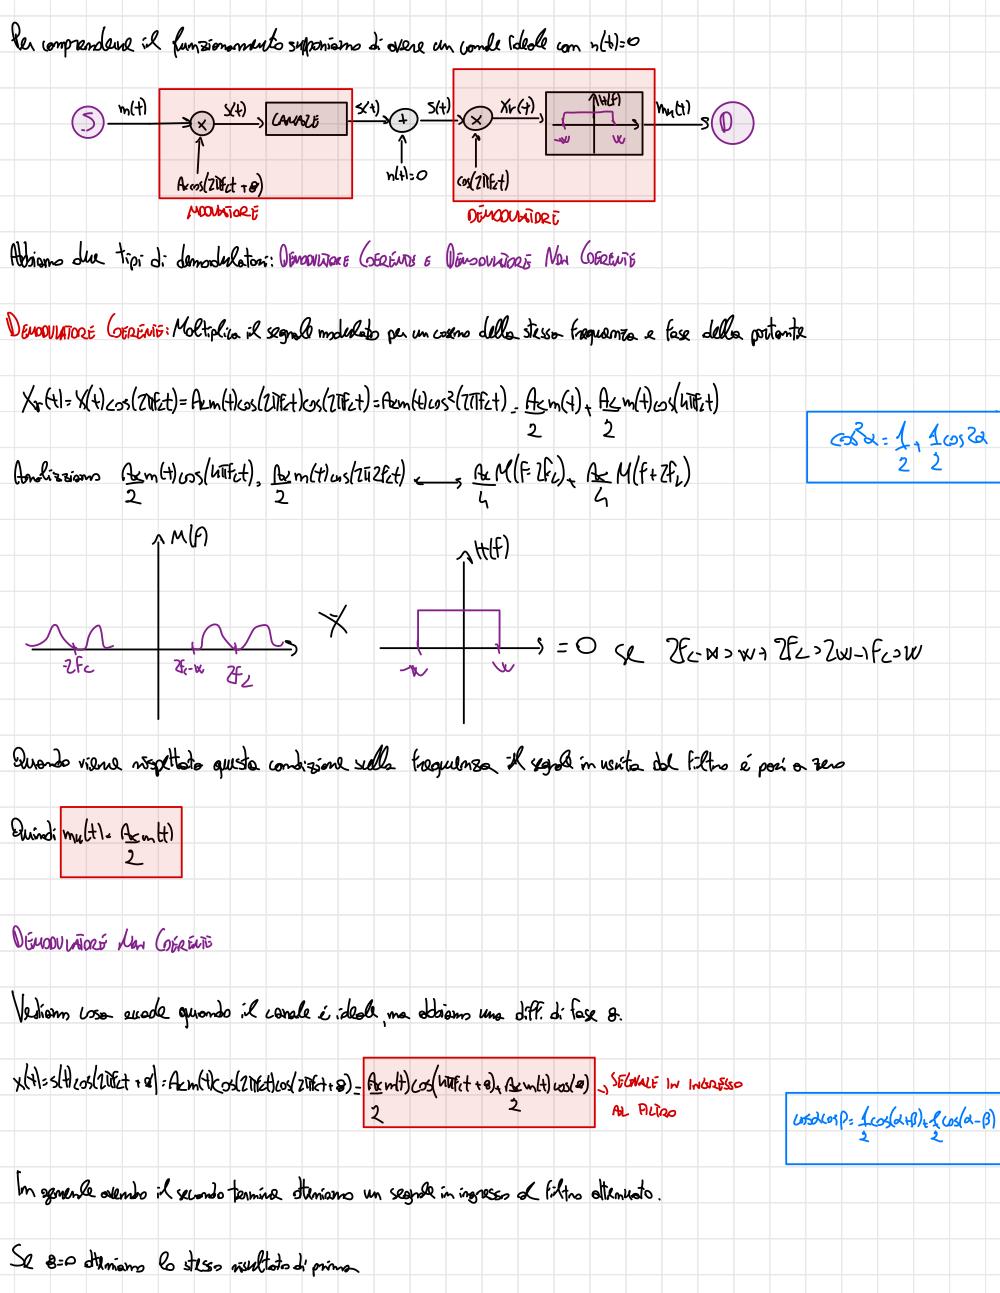 Per comprendere il funzionamento supponiamo di avere un canale ideale con n(t)=0
S m(t) x s(t) CANALE s(t) + s(t) x Xr(t) H(f) -w w mu(t) D
Accos(2πfct+θ) n(t)=0 cos(2πfct)
MODULATORE DEMODULATORE
Abbiamo due tipi di demodulatori: DEMODULATORE COERENTE E DEMODULATORE NON COERENTE
DEMODULATORE COERENTE: Moltiplica il segnale modulato per un coseno della stessa frequenza e fase della portante
Xr(t)=X(t)cos(2πfct)=Acm(t)cos(2πfct)cos(2πfct)=Acm(t)cos²(2πfct)=Ac/2 m(t)+Ac/2 m(t)cos(4πfct)
cos²α=1/2+1/2 cos2α
Analizziamo Ac/2 m(t)cos(4πfct)=Ac/2 m(t)cos(2π2fct) ⟷ Ac/4 M(f-2fc)+Ac/4 M(f+2fc)
M(f) H(f)
-2fc 2fc-w 2fc x -w w =0 se 2fc-w>w→2fc>2w→fc>w
Quando viene rispettato questa condizione sulla frequenza il segnale in uscita dal filtro é pari a zero
Quindi mu(t)=Ac/2 m(t)
DEMODULATORE NON COERENTE
Vediamo cosa accade quando il canale é ideale, ma abbiamo una diff. di fase θ.
x(t)=s(t)cos(2πfct+θ)=Acm(t)cos(2πfct)cos(2πfct+θ)=Ac/2 m(t)cos(4πfct+θ)+Ac/2 m(t)cos(θ) → SEGNALE IN INGRESSO
AL FILTRO
cosαcosβ=1/2 cos(α+β)+1/2 cos(α-β)
In generale avendo il secondo termine otteniamo un segnale in ingresso al filtro attenuato.
Se θ=0 otteniamo lo stesso risultato di prima